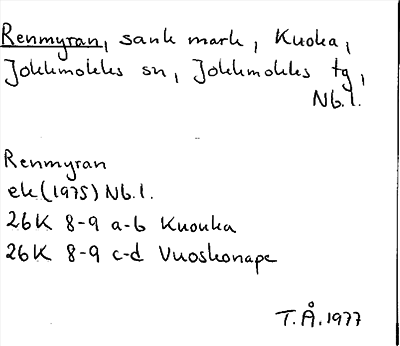 Renmyran, sank mark, Kuoka,
Jokkmokks sn, Jokkmokks tg,
Nb.l.
Renmyran
ek(1975) Nb.l.
26K 8-9 a-b Kuouka
26K 8-9 c-d Vuoskonape
T.Å.1977